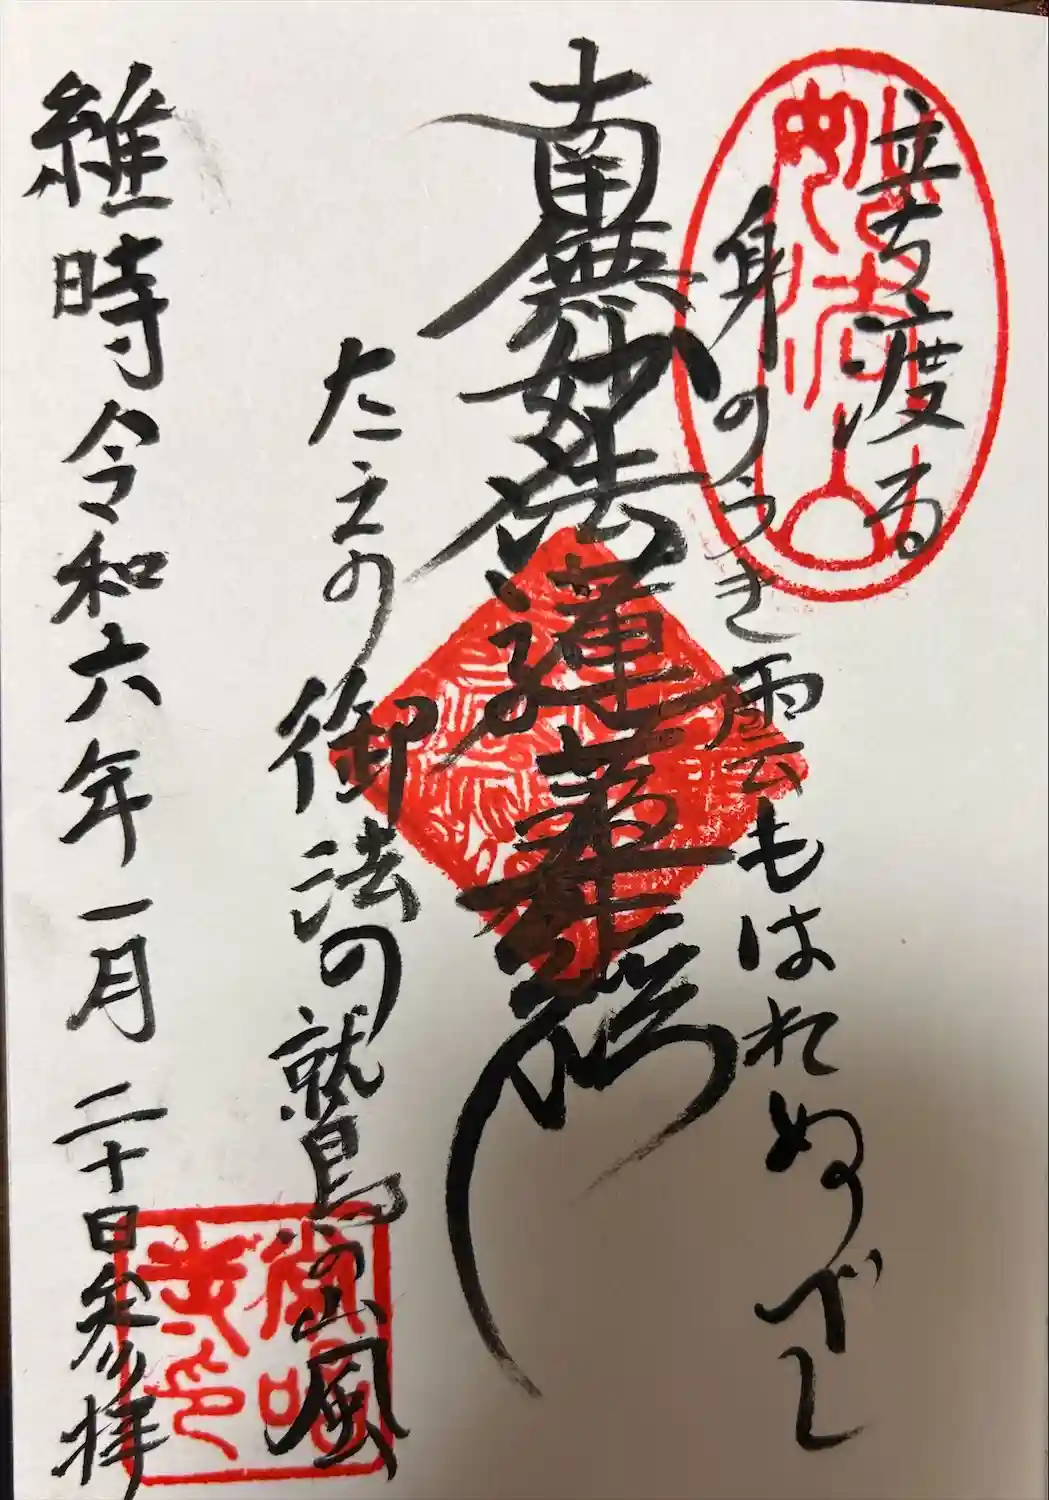 立ち度る
身のうき雲もはれぬべし
南無妙法蓮華経
たえの御法の鷲の山風
維時令和六年一月二十日参拝
妙法山